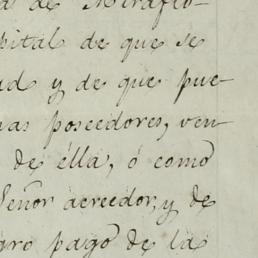 de Miraflo-
pital de que se
ad y de que pue-
vas poseedores, ven-
de élla, ó como
Señor acreedor, y de
aro pago de la